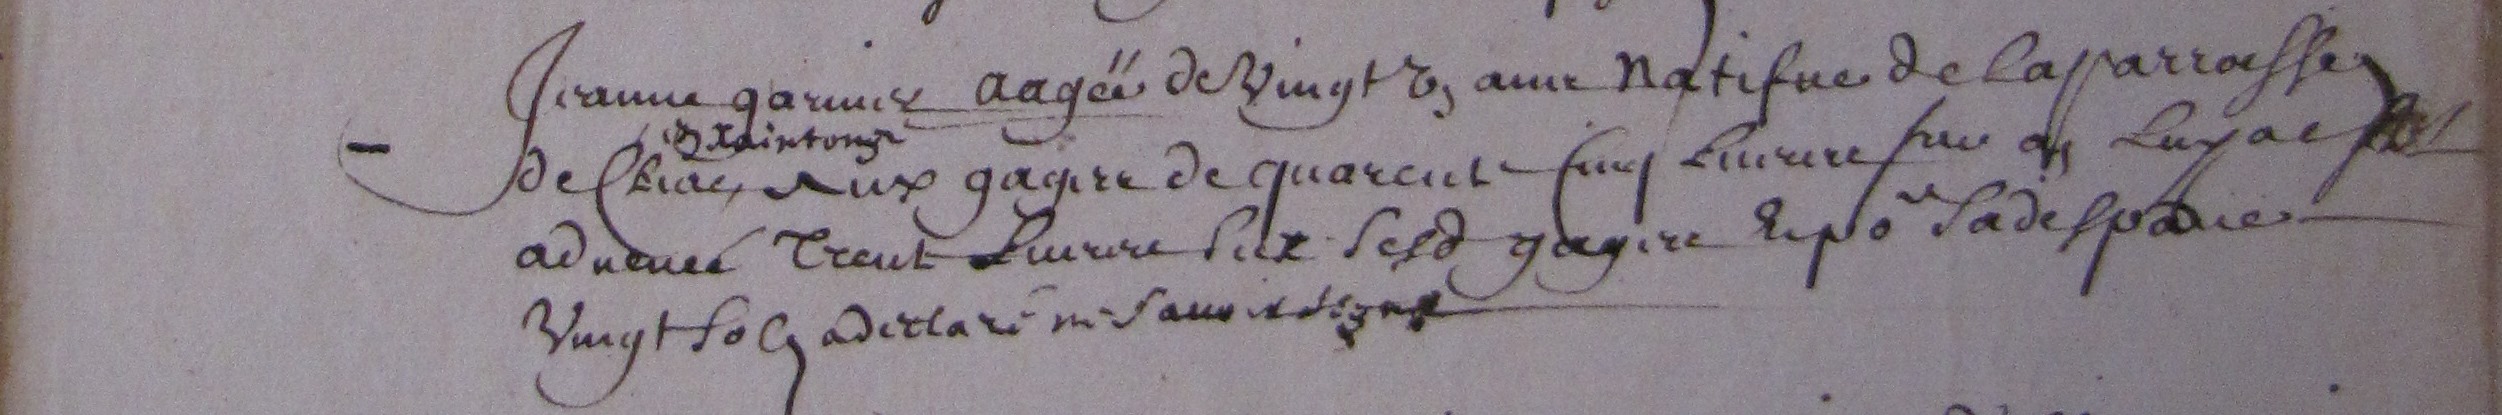 Jeanne garnier aagée de Vingt ans Natifue de la parroisse
en Xaintonge
de Clerac, Aux gages de quarente cinq Liures par an Luy a esté
aduancé Trente Liures Sur Sesd gages Et po.r Sa despance
Vingt Solz a declaré ne Sauoir signer